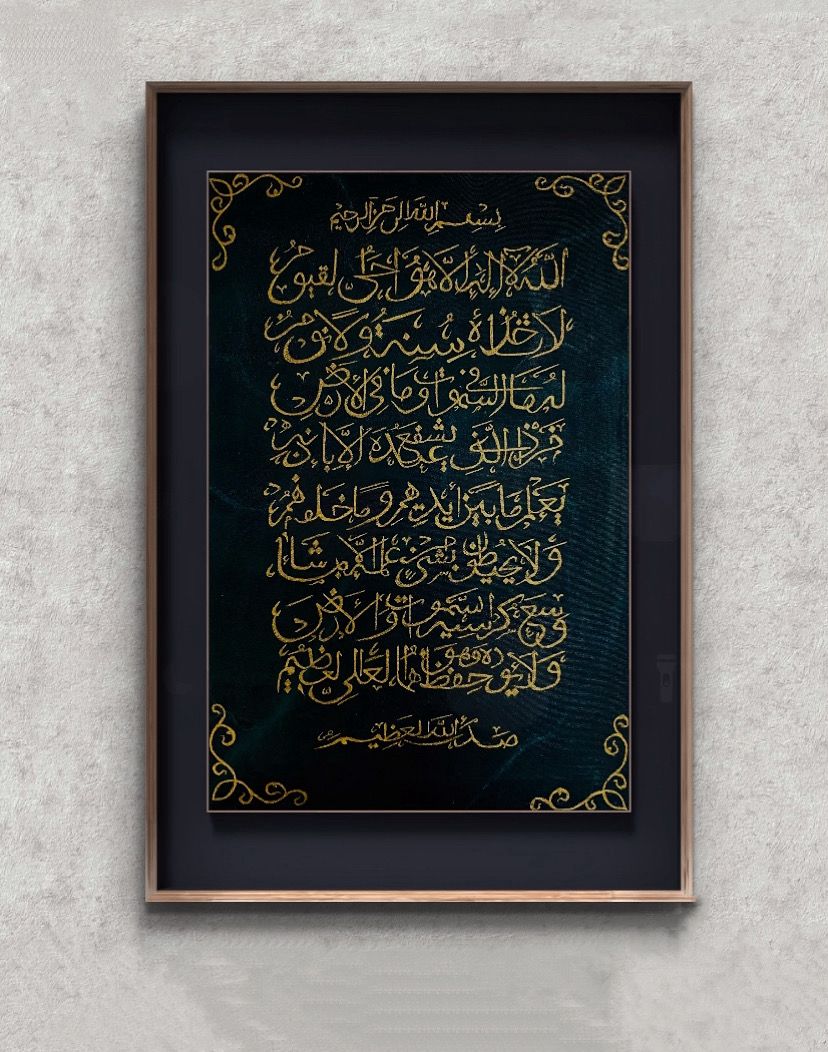 بسم الله الرحمن الرحيم
الله لا اله الا هو الحى القيوم
لا تأخذه سنة ولا نوم
له ما فى السموات وما فى الأرض
من ذا الذى يشفع عنده الا باذنه
يعلم ما بين أيديهم وما خلفهم
ولا يحيطون بشئ من علمه الا بما شاء
وسع كرسيه السموات والأرض
ولا يؤده حفظهما وهو العلى العظيم
صدق الله العظيم